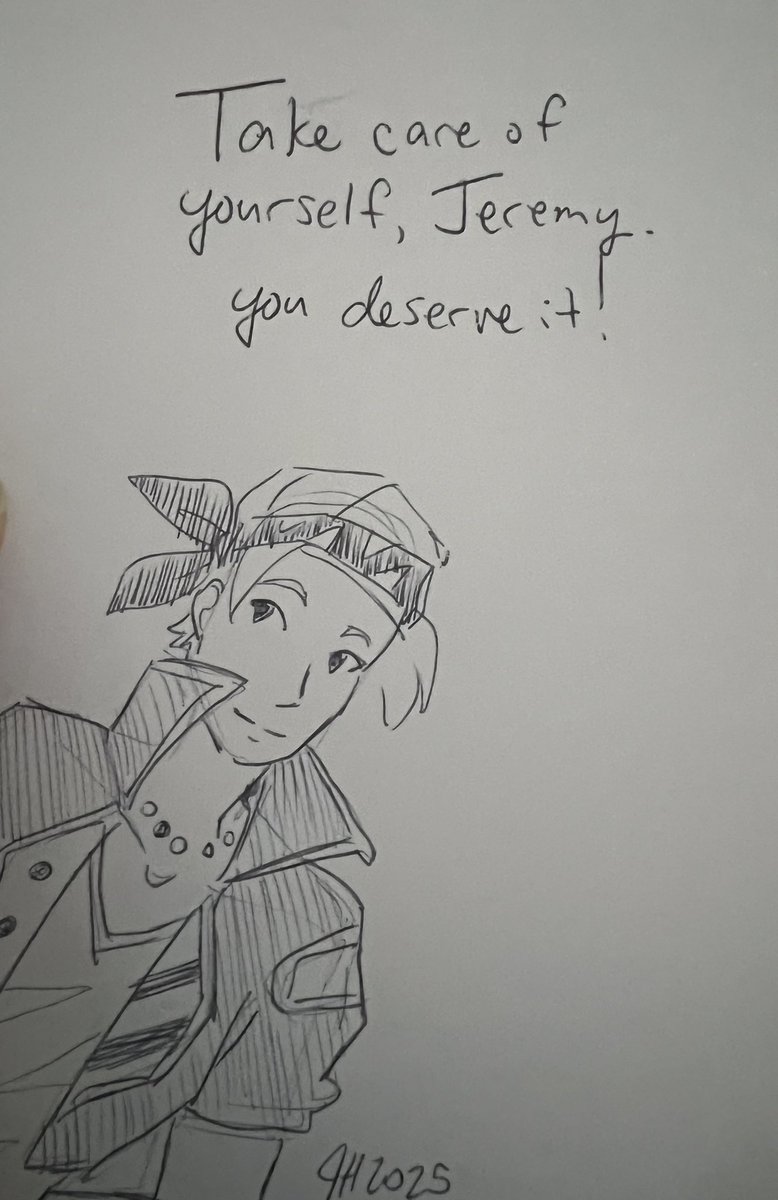 Take care of
yourself, Jeremy.
you deserve it!
JH2025